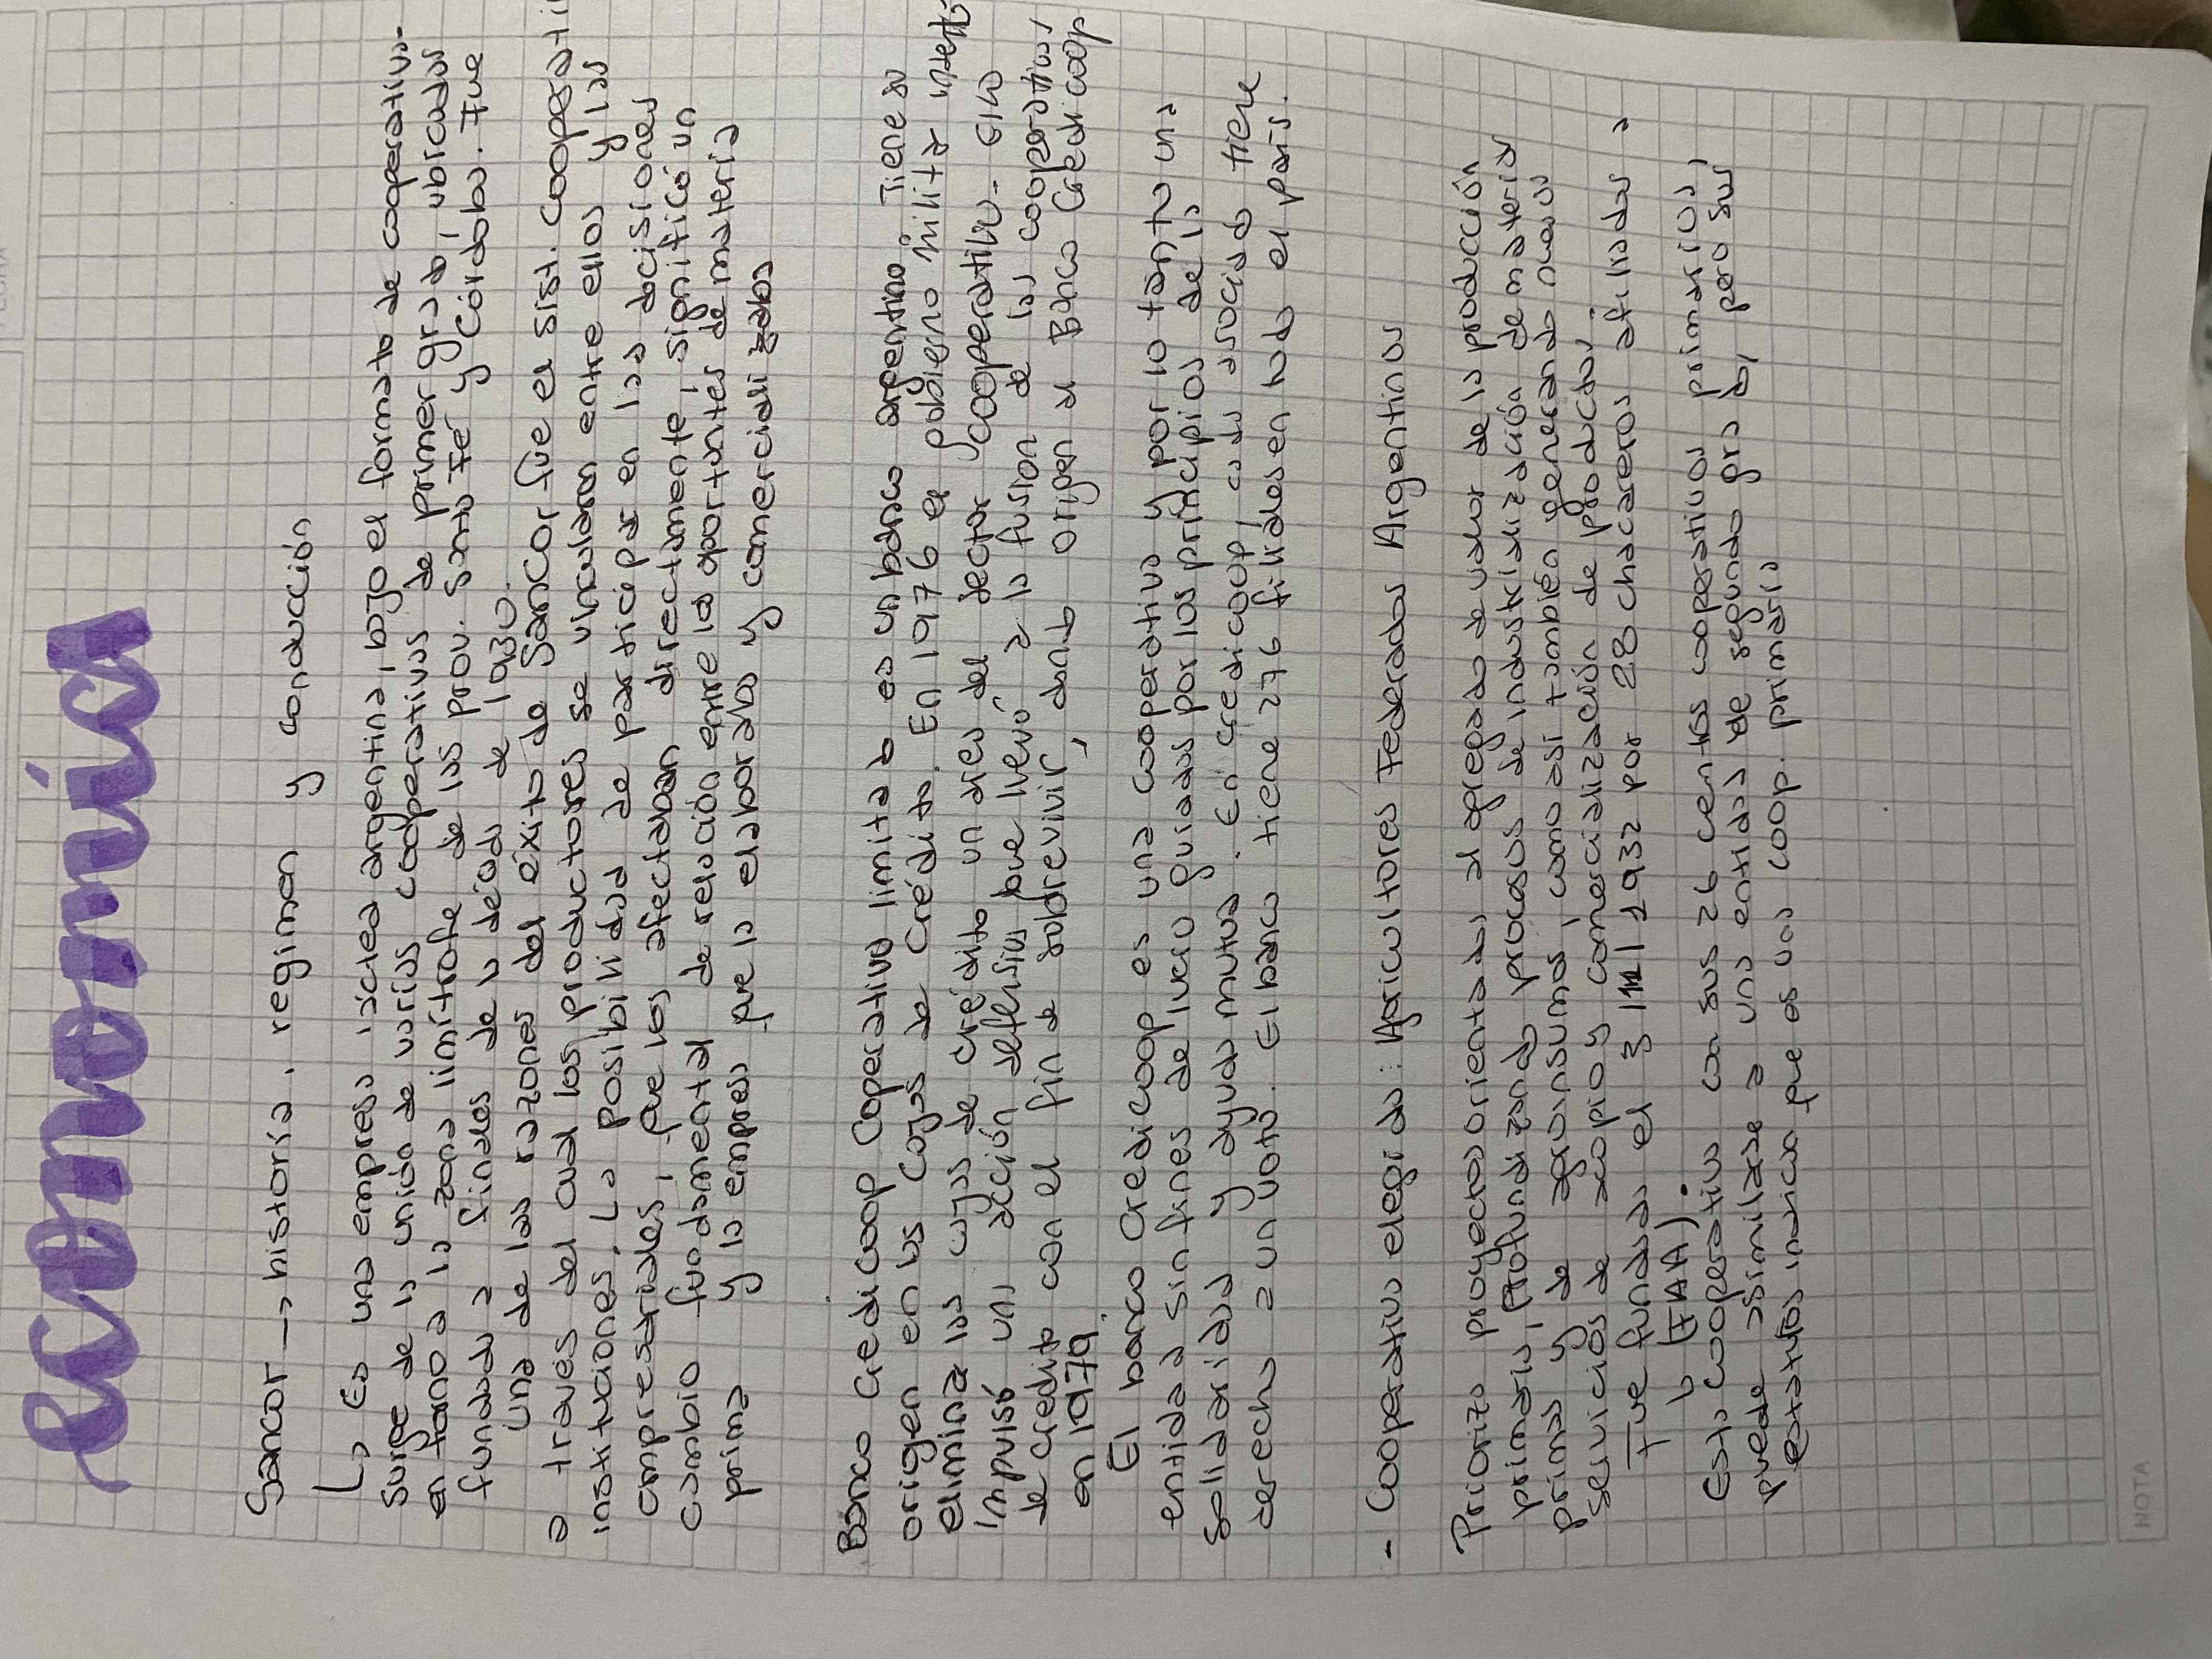 economía
Sancor → historia, regimen y conducción
↳ Es una empresa láctea argentina, bajo el formato de cooperativa.
Surge de la unión de varias cooperativas de primer grado, ubicadas
en torno a la zona limítrofe de las prov. Santa Fé y Córdoba. Fue
fundada a finales de la década de 1930.
Una de las razones del éxito de SanCor fue el sist. cooperati
a través del cual los productores se vinculaban entre ellos y las
instituciones. La posibilidad de participar en las decisiones
empresariales, que los afectaban directamente, significó un
cambio fundamental de relación entre los aportantes de materia
prima y la empresa que la elaboraba y comercializaba
Banco Credicoop Coperativo limitado es un banco argentino. Tiene su
origen en las Cajas de Crédito. En 1976 el gobierno militar intentó
eliminar las cajas de crédito un dies del sector cooperativo. Esto
impulsó una acción defensiva que llevó a la fusión de las cooperativas
de credito con el fin de sobrevivir, dando origen al Banco Credicoop
en 1979.
El banco Credicoop es una cooperativa y por lo tanto una
entidad sin fines de lucro guiadas por los principios de la
solidaridad y ayuda mutua. En credicoop, cada asociado tiene
derecho a un voto. El banco tiene 276 filiales en todo el país.
- Cooperativa elegida: Agricultores Federados Argentinos
Prioriza proyectos orientados al agregado de valor de la producción
primaria, profundizando procesos de industrialización de materia
prima y de agroinsumos, como así también generando nuevos
servicios de acopio y comercialización de productos.
Fue fundada el 3/11/1932 por 28 chacareros afiliados a
la (FAA).
Esta cooperativa con sus 26 centros cooperativos primarios,
puede asimilarse a una entidad de segundo grado, pero sus
estatutos indica que es una coop. primaria
NOTA